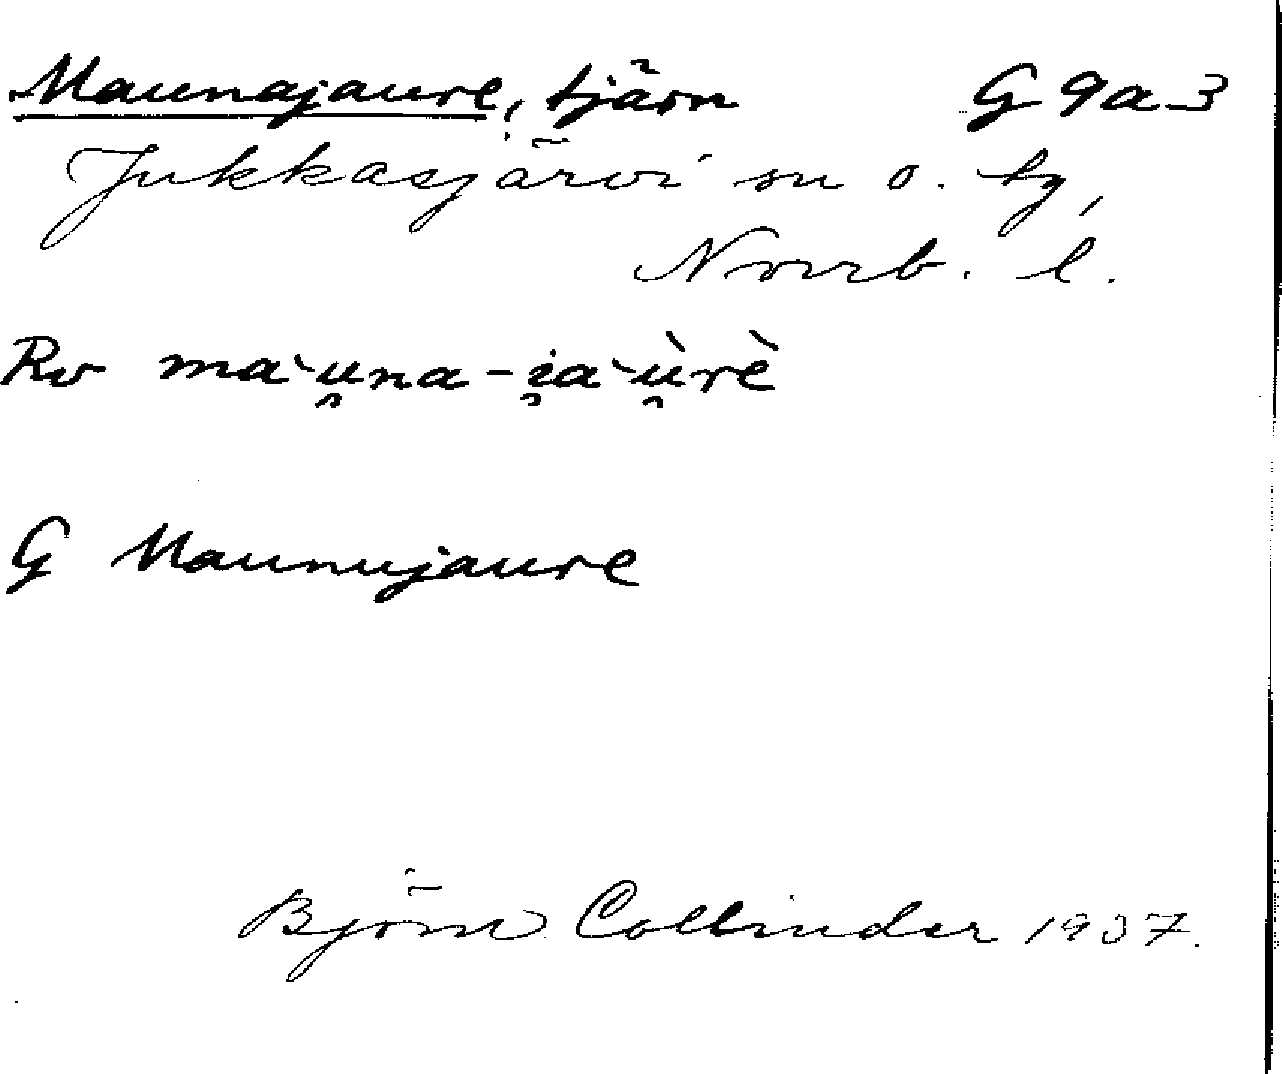 Maunajaure, tjärn G 9a3
Jukkasjärvi sn o. tg,
Norrb. l.
Rv maˋu̯na-i̯aˋù̯rè
G Maunujaure
Björn Collinder 1937.